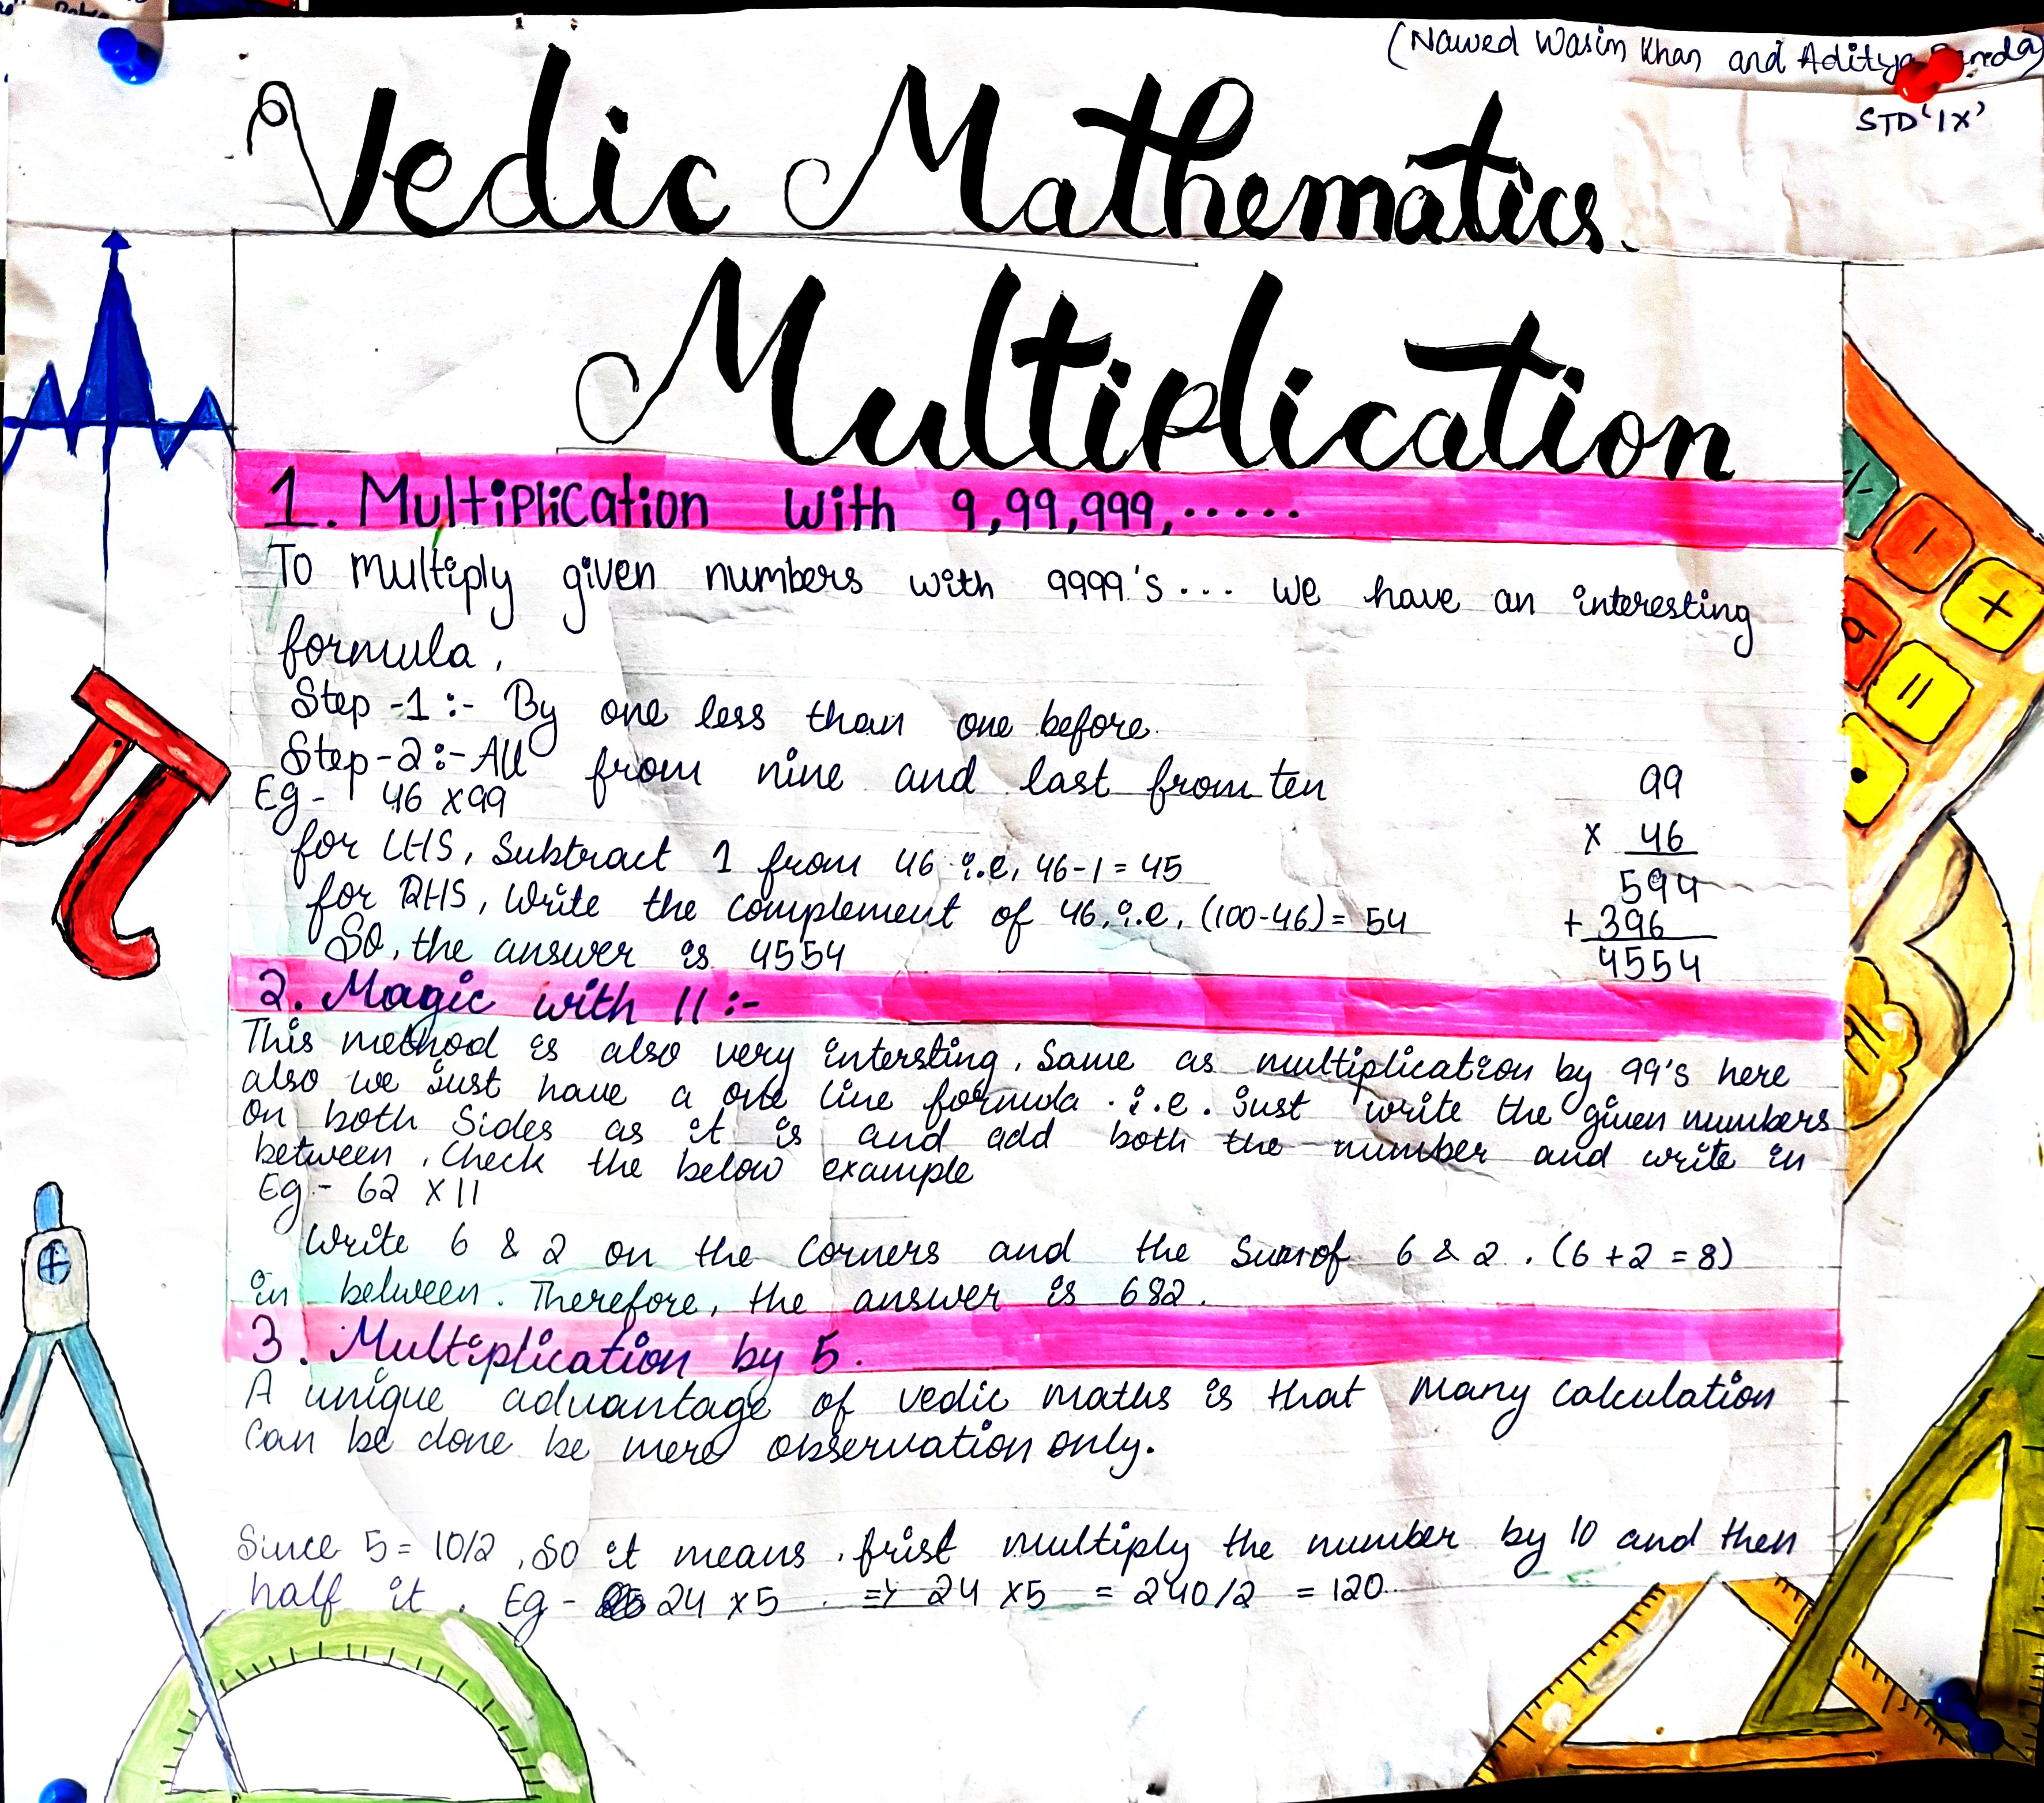 (Nawed Wasim Khan and Aditya
STD 'IX'
Vedic Mathematics.
Multiplication
1. Multiplication with 9,99,999,.....
To multiply given numbers with 9999's... we have an interesting
formula,
Step -1 :- By one less than one before.
Step -2 :- All from nine and last from ten
Eg - 46 x99
for LHS, Subtract 1 from 46 i.e, 46-1 = 45
for RHS, Write the complement of 46, i.e, (100-46) = 54
So, the answer is 4554
99
x 46
594
+ 396
4554
2. Magic with 11 :-
This method is also very intersting, Same as multiplication by 99's here
also we just have a one line formula . i.e. just write the given numbers
on both Sides as it is and add both the number and write in
between, Check the below example
Eg - 62 x 11
Write 6 & 2 on the Corners and the Sum of 6 & 2 . (6 + 2 = 8)
in between. Therefore, the answer is 682.
3. Multiplication by 5.
A unique advantage of vedic maths is that many calculation
Can be done be mere observation only.
Since 5 = 10/2 , So it means , frist multiply the number by 10 and then
half it . Eg - 24 x 5 . => 24 x5 = 240/2 = 120.